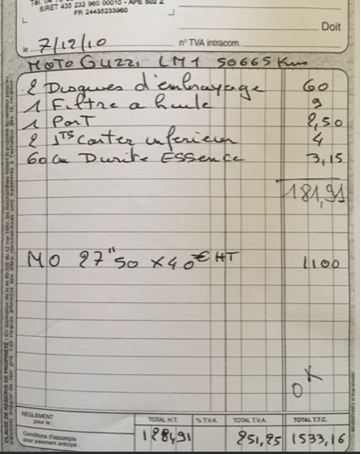 SIRET 435 232 960 00010 - APE 502 Z
FR 24435233960
Doit
le 7/12/10
n° TVA intracom.
MOTO GUZZI LM1 50665 Kms
2 Disques d'embrayage 60
1 Filtre a huile 9
1 PORT 2,50
2 JTS carter inferieur 4
60 cm Durite ESSENCE 3,15
181,91
MO 27" 50 X 40 € HT 1100
OK
RÈGLEMENT
pour le :
Conditions d'escompte
pour paiement anticipé :
TOTAL H.T. % T.V.A. TOTAL T.V.A. TOTAL T.T.C.
1281,91 251,25 1533,16